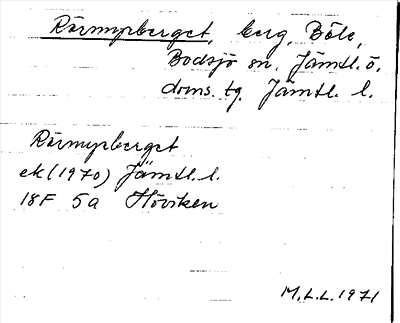 Rörmyrberget, berg, Böle,
Bodsjö sn. Jämtl. ö.
doms. tg. Jämtl. l.
Rörmyrberget
ek (1970) Jämtl. l.
18F 5a Hoviken
M.L.L. 1971